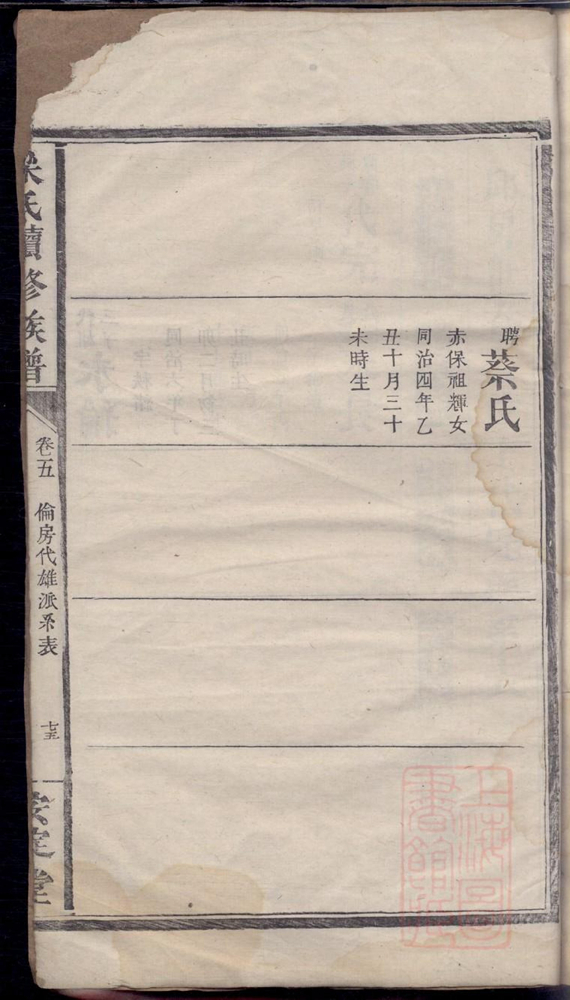 聘蔡氏
赤保祖輝女
同治四年乙
丑十月三十
未時生
梁氏續修族譜
卷五 倫房代雄派系表
安定堂
上海圖
書館藏